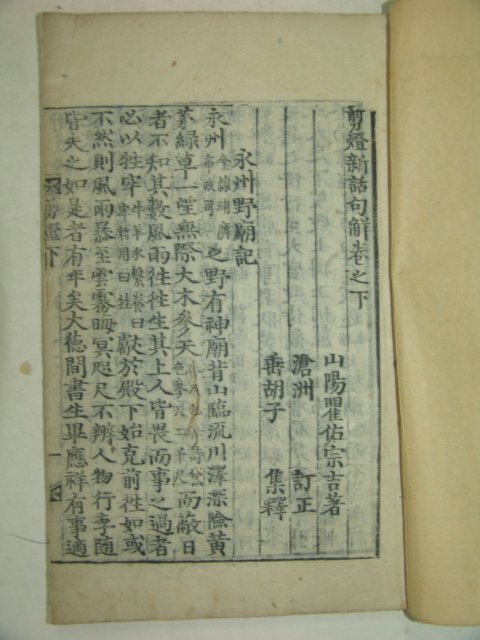 剪燈新話句解卷之下
山陽瞿佑宗吉著
滄洲 訂正
垂胡子 集釋
永州野廟記
永州今隸湖廣布政司之野有神廟背山臨流川澤深險黃
茅綠草一望無際大木參天而蔽日
者不知其數風雨徃徃生其上人皆畏而事之過者
必以牲牢獻於殿下始克前徃如或
不然則風雨暴至雲霧晦冥咫尺不辨人物行李隨
皆失之如是者有年矣大德間書生畢應祥有事適
剪燈下 一